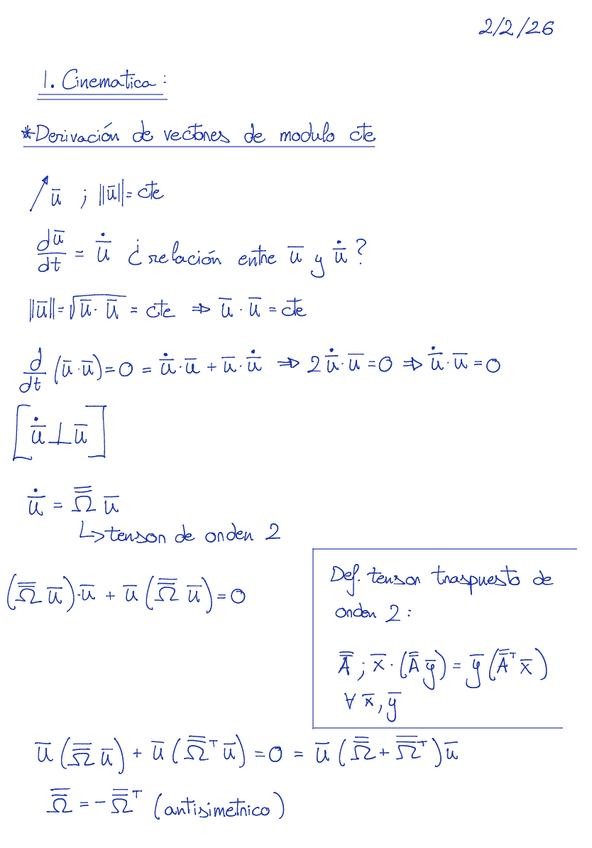 2/2/26
1. Cinematica:
*Derivación de vectores de modulo cte
ū ; ||ū||= cte
dū/dt = u̇̄ ¿relación entre ū y u̇̄?
||ū||=√(ū · ū) = cte ⇒ ū · ū = cte
d/dt (ū · ū)=0 = u̇̄ · ū + ū · u̇̄ ⇒ 2 u̇̄ · ū =0 ⇒ u̇̄ · ū =0
[u̇̄ ⊥ ū]
u̇̄ = Ω̿ ū
↳ tensor de orden 2
(Ω̿ ū)·ū + ū (Ω̿ ū)=0
Def. tensor traspuesto de
orden 2:
A̿ ; x̄ · (A̿ ȳ) = ȳ (A̿ᵀ x̄)
∀ x̄, ȳ
ū (Ω̿ ū) + ū (Ω̿ᵀ ū) =0 = ū (Ω̿ + Ω̿ᵀ) ū
Ω̿ = - Ω̿ᵀ (antisimetrico)